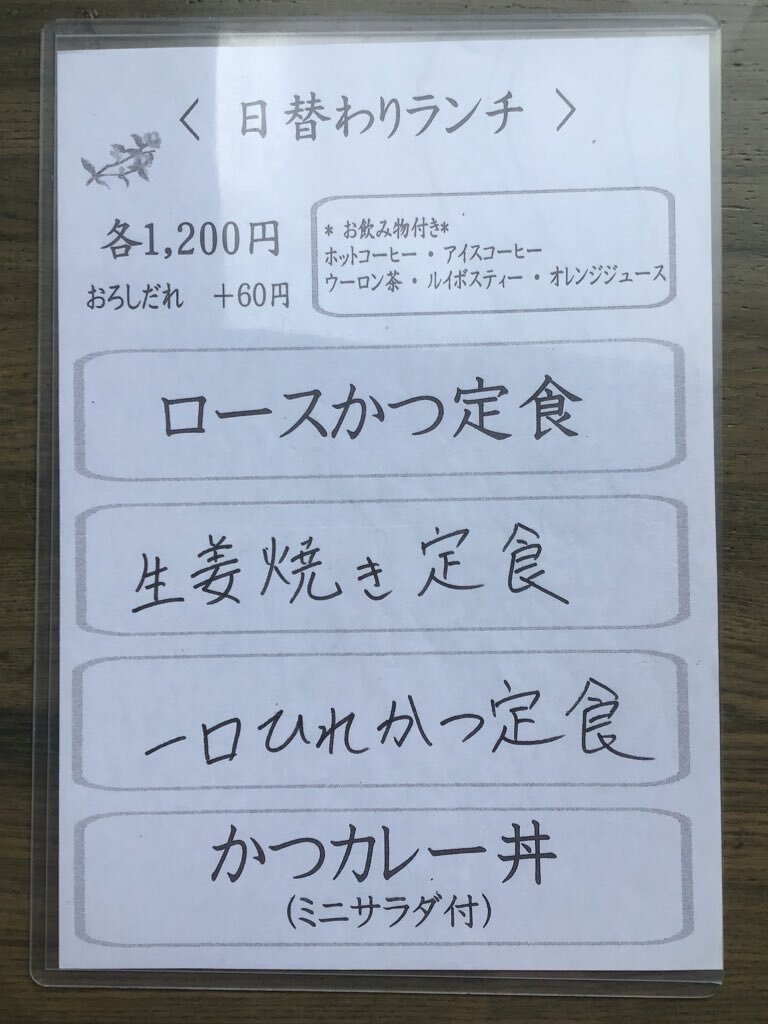 〈 日替わりランチ 〉
各1,200円
おろしだれ ＋60円
* お飲み物付き*
ホットコーヒー・アイスコーヒー
ウーロン茶・ルイボスティー・オレンジジュース
ロースかつ定食
生姜焼き定食
一口ひれかつ定食
かつカレー丼
(ミニサラダ付)